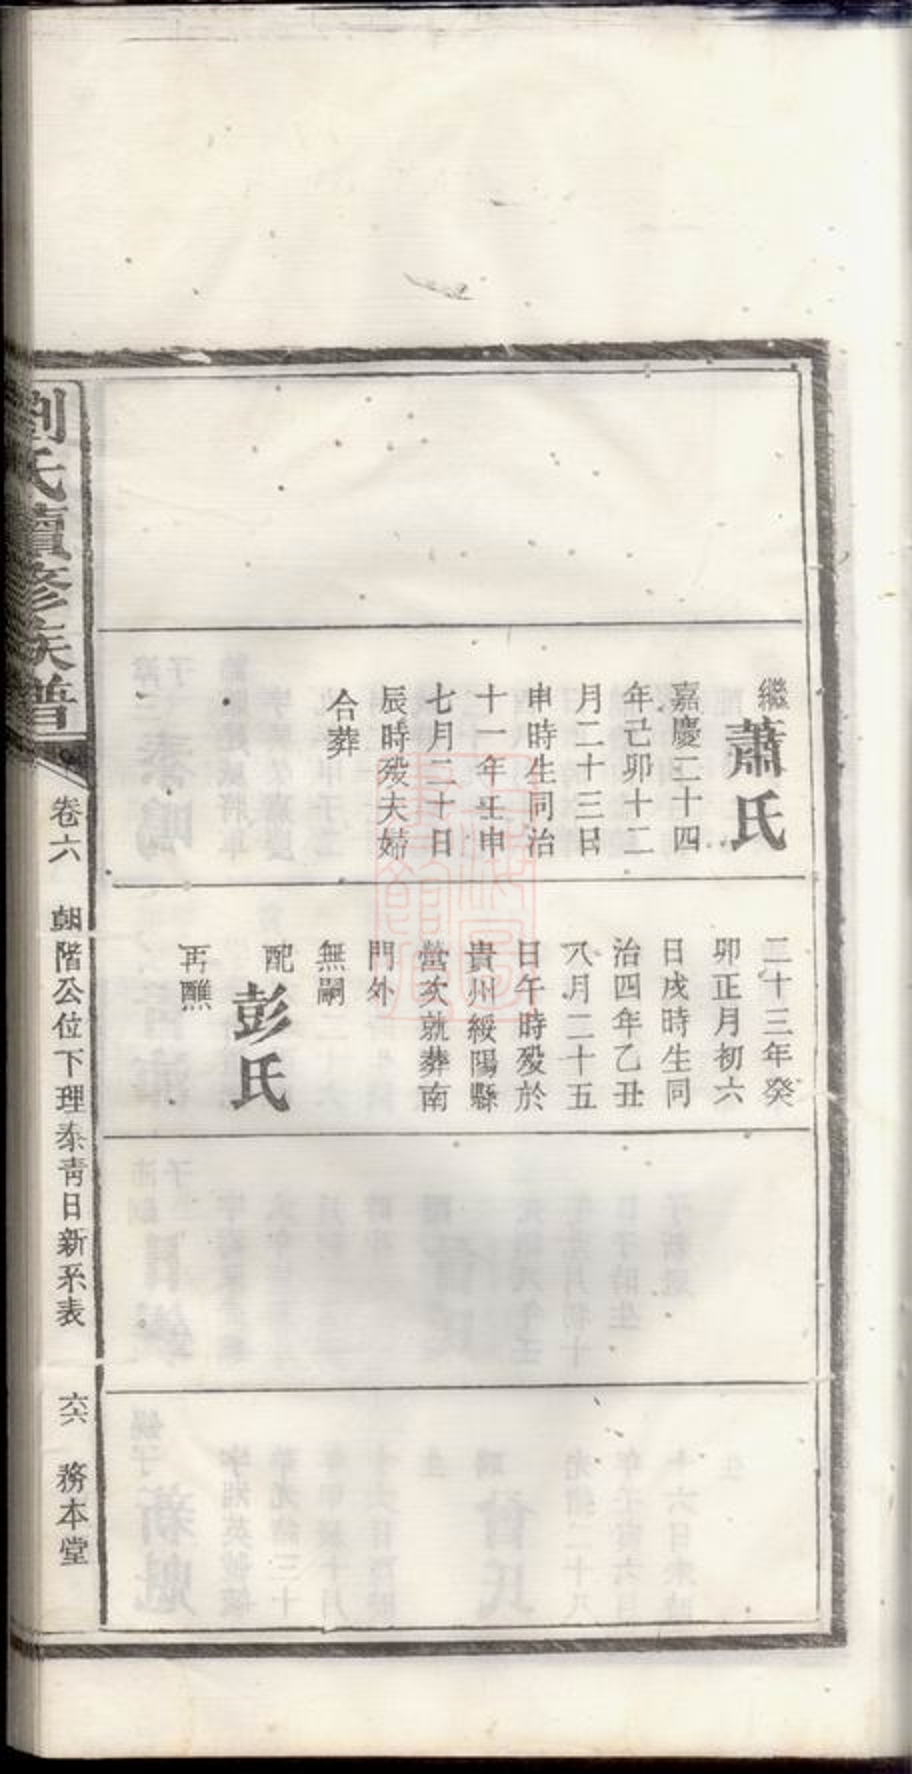 繼蕭氏
嘉慶二十四
年己卯十二
月二十三日
申時生同治
十一年壬申
七月二十日
辰時殁夫婦
合葬
二十三年癸
卯正月初六
日戌時生同
治四年乙丑
八月二十五
日午時殁於
貴州綏陽縣
營次就葬南
門外
無嗣
配彭氏
再醮
劉氏續修族譜
卷六
朝階公位下理泰青日新系表
六六
務本堂